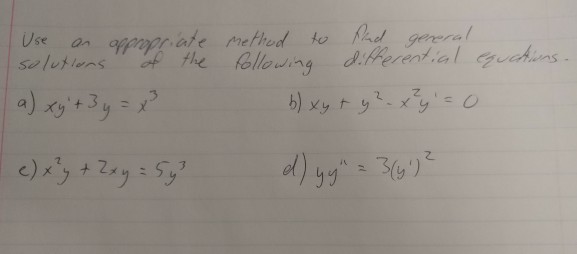 Use an appropriate method to find general
solutions of the following differential equations.
a) xy' + 3y = x³
b) xy + y² - x²y' = 0
c) x²y + 2xy = 5y³
d) yy" = 3(y')²